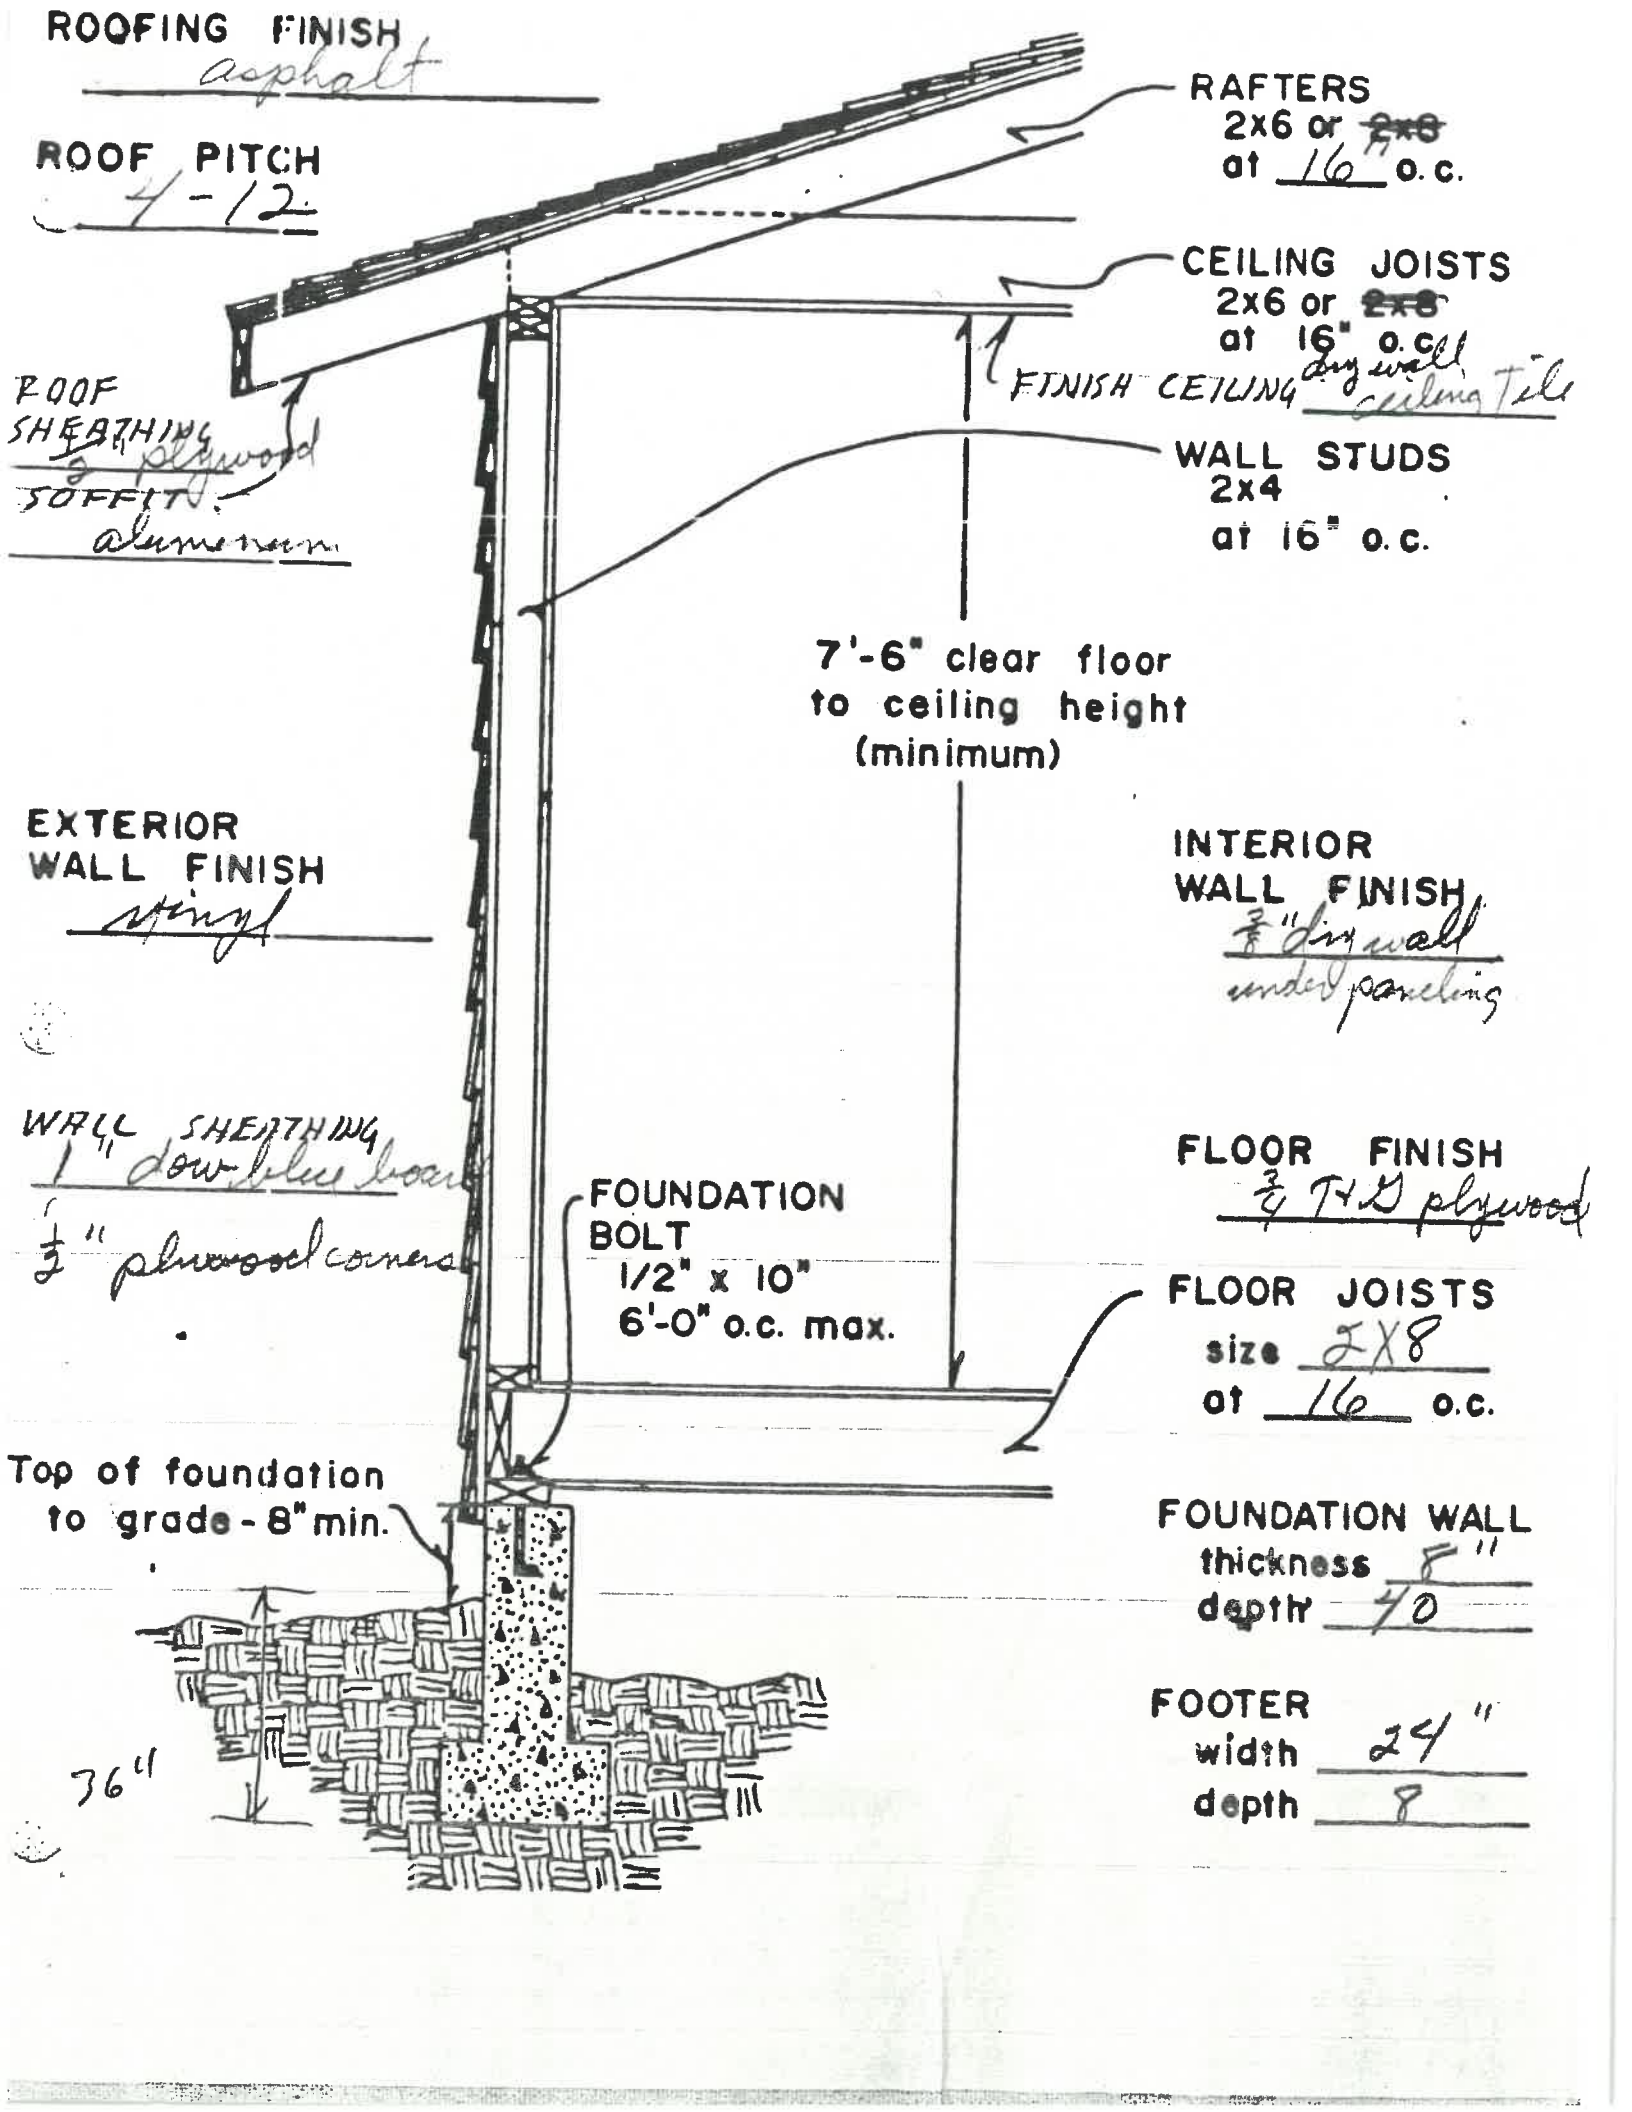 ROOFING FINISH
asphalt
ROOF PITCH
4-12
ROOF
SHEATHING
1/2" plywood
SOFFIT
alumenum
EXTERIOR
WALL FINISH
vinyl
WALL SHEATHING
1" dow blue board
1/2" plwood corners
Top of foundation
to grade - 8" min.
36"
RAFTERS
2x6 or 2x8
at 16" o.c.
CEILING JOISTS
2x6 or 2x8
at 16" o.c.
drywall
FINISH CEILING ceiling Tile
WALL STUDS
2x4
at 16" o.c.
7'-6" clear floor
to ceiling height
(minimum)
INTERIOR
WALL FINISH
3/8" drywall
under paneling
FOUNDATION
BOLT
1/2" x 10"
6'-0" o.c. max.
FLOOR FINISH
3/4 T+G plywood
FLOOR JOISTS
size 2X8
at 16 o.c.
FOUNDATION WALL
thickness 8"
depth 40
FOOTER
width 24"
depth 8